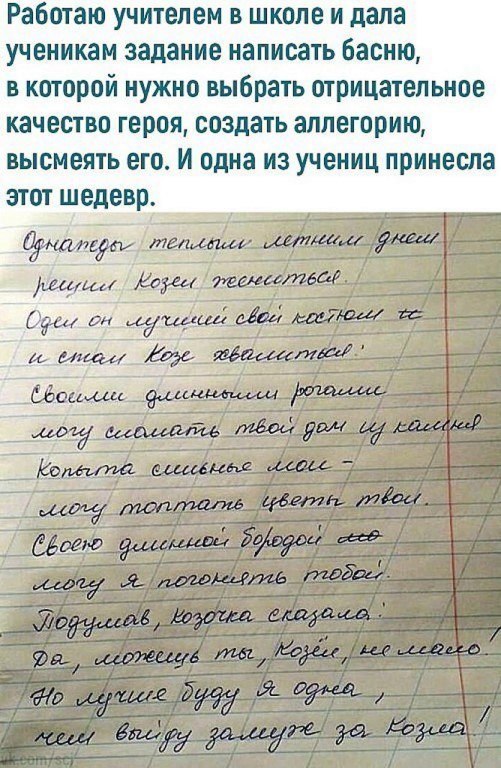 Работаю учителем в школе и дала
ученикам задание написать басню,
в которой нужно выбрать отрицательное
качество героя, создать аллегорию,
высмеять его. И одна из учениц принесла
этот шедевр.
Однажды теплым летним днем
решил Козел жениться.
Одел он лучший свой костюм и
и стал Козе хвалиться:
Своими длинными рогами
могу сломать твой дом из камня
Копыта сильные мои -
могу топтать цветы твои.
Своею длинной бородой мо
могу я погонять тобой.
Подумав, козочка сказала:
Да, можешь ты, Козёл, не мало!
Но лучше буду я одна,
чем выйду замуж за Козла!
vk.com/sci